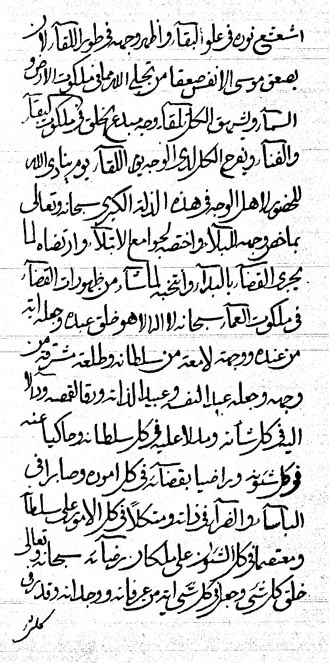 استتع نوره فی علو البقآء و اظهر وجهه فی طور اللقآء لان
یصعق موسی الانفس صعقا من تجلی الله مما فی ملکوت الارض و
السمآء و لشرق الکل تلقآء وجه مبدع الخلق فی ملکوت البقآء
و الفنآء و یفرح الکل لدی الوجه یوم اللقآء یوم ینادی الله
للحضور لاهل الوجه فی هذه الذلة الکبری سبحانه و تعالی
بما خص وجهه للبلآء و اختصه لجوامع الابتلآء و ارتضاه لما
یجری القضآء بالبدآء و انتخبه لما شآء من ظهورات القضآء
فی ملکوت العمآء سبحانه لا اله الا هو خلق عبده و جعله ایة
من عنده و وجهة لامعة من سلطانه و طلعة مشرقة من
وجهه و جعله عبد النفسه و عبید الذاته و رقا لقمصه و دالا
الیه فی کل شأنه و مدلا علیه فی کل سلطانه و حاکیا عنه
فی کل شئونه و راضیا بقضآئه فی کل اموره و صابرا فی
البأسآء و الضرآء فی ذاته و متکلا فی کل الامور علی سلطانه
و معتصما فی کل الشئون علی ملکان رضآئه سبحانه و تعالی
خلق کل شیء و جعل فی کل شیء ایة من عرفانه و وجدانه و قد فرق